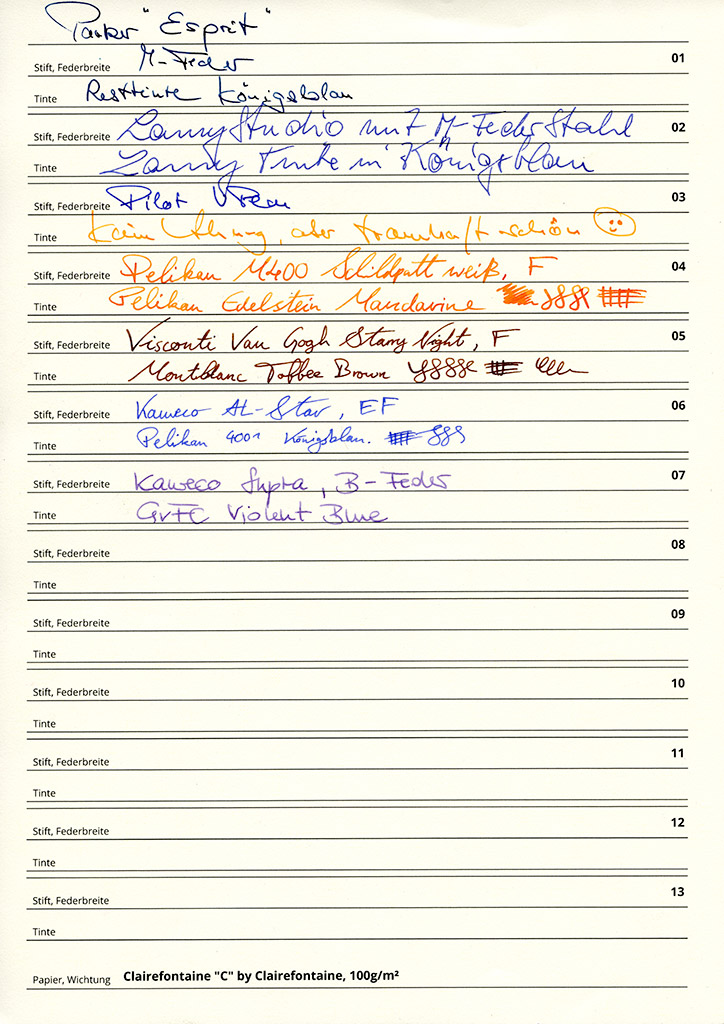 Parker "Esprit"
Stift, Federbreite M-Feder 01
Tinte Resttinte Königsblau
Stift, Federbreite Lamy Studio mit M-Feder Stahl 02
Tinte Lamy Tinte in Königsblau
Stift, Federbreite Pilot VPen 03
Tinte Keine Ahnung, aber traumhaft schön
Stift, Federbreite Pelikan M400 Schildpatt weiß, F 04
Tinte Pelikan Edelstein Mandarine
Stift, Federbreite Visconti Van Gogh Starry Night, F 05
Tinte Montblanc Toffee Brown
Stift, Federbreite Kaweco AL-Star, EF 06
Tinte Pelikan 4001 Königsblau.
Stift, Federbreite Kaweco Supra, B-Feder 07
Tinte GvFC Violent Blue
Stift, Federbreite 08
Tinte
Stift, Federbreite 09
Tinte
Stift, Federbreite 10
Tinte
Stift, Federbreite 11
Tinte
Stift, Federbreite 12
Tinte
Stift, Federbreite 13
Tinte
Papier, Wichtung Clairefontaine "C" by Clairefontaine, 100g/m²